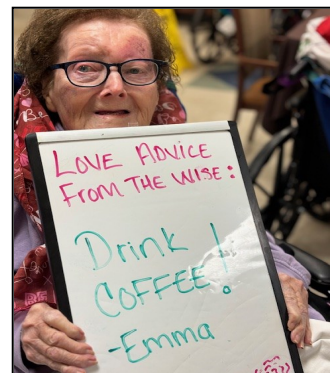 LOVE ADVICE
FROM THE WISE:
Drink
COFFEE!
-Emma